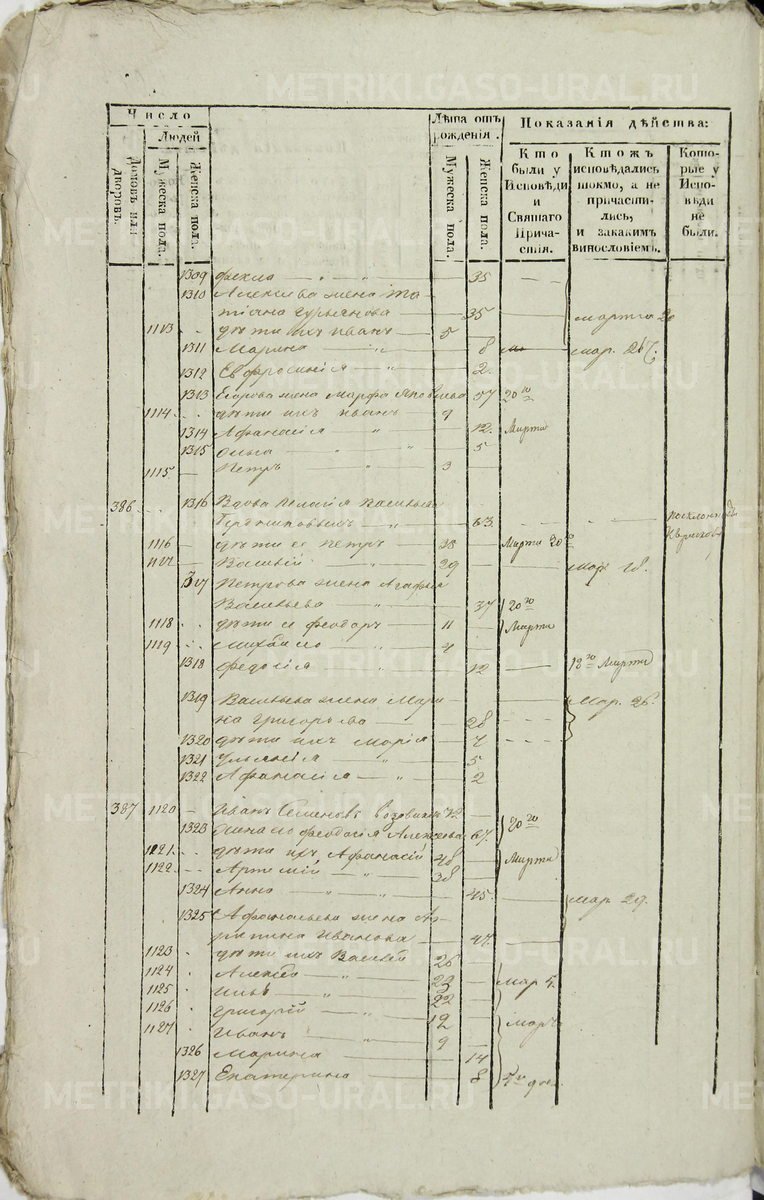 METRIKI.GASO-URAL.RU
Число
Людей
Домовъ или дворовъ.
Мужеска пола.
Женска пола.
Лѣта отъ рожденія.
Мужеска пола.
Женска пола.
Показанія дѣйства:
Кто были у Исповѣди и Святаго Причастія.
Ктожъ исповѣдались токмо, а не причастились, и закакимъ винословіемъ.
Которые у Исповѣди не были.
1309 Фекла — „ — „ — 35
1310 Алексѣева жена Та-
тіана Гурьянова — 35 Марта 20
1113 дѣти ихъ Иванъ — 5
1311 Марина — „ — 8 мар. 26
1312 Евфросинія „ — 2
1313 Егорова жена Марфа 37 20го
1114 дѣти ихъ Иванъ 9
1314 Афанасія „ — 12. Марта
1315 Ольга — „ „ — 5
1115 — Петръ — „ — 3
386 1316 Вдова Пелагія Васильева
— „ — 63.
1116 дѣти ея Петръ — 38 Марта 20го
1117 — Василій „ — 29 Мар. 18.
1317 Петрова жена Агафья
Васильева „ — 37 20го
1118 дѣти ея Феодоръ — 11 Марта
1119 Михайло — „ — 4
1318 Федосія „ — 12 18го Марта
1319 Васильева жена Мари-
на Григорьева — 28 Мар. 26.
1320 дѣти ихъ Марія — 7
1321 Ульянія — „ — 5
1322 Афанасія — „ — 2
387 1120 — Иванъ Семеновъ 72.
1323 Жена его Феодосія Алексѣева 67. 20го
1121 дѣти ихъ Афанасій 48 Марта
1122 — Артемій — „ — 38
1324 Анна — „ — „ — 45. Мар. 29.
1325 Афанасьева жена Аг-
рипина Иванова — 47.
1123 дѣти ихъ Василій 26
1124 Алексѣй — „ — 23 — Мар 4.
1125 Илья — „ — 22
1126 Григорій — „ — 12 Мар.
1127 Иванъ — „ — 9
1326 Марина — 14
1327 Екатерина — 8